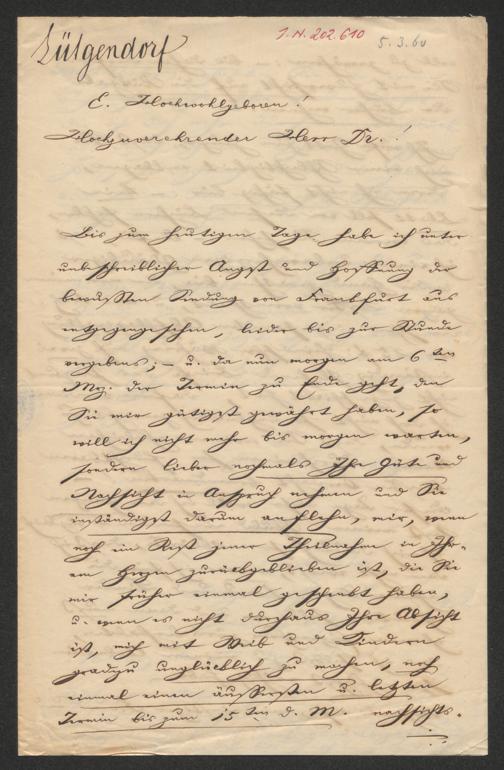 Lütgendorf
I.N. 202.610
5.3.60
E. Hochwohlgeboren!
Hochzuverehrender Herr Dr.!
Bis zum heutigen Tage habe ich unter
unbeschreiblicher Angst und Hoffnung der
bewußten Sendung von Frankfurt aus
entgegengesehen, leider bis zur Stunde
vergebens; – u. da nun morgen am 6ten
Mz. der Termin zu Ende geht, den
Sie mir gütigst gewährt haben, so
will ich nicht mehr bis morgen warten,
sondern lieber nochmals Ihre Güte und
Nachsicht in Anspruch nehmen und Sie
inständigst darum anflehn, mir, wenn
noch ein Rest jener Theilnahme in Ihr-
em Herzen zurückgeblieben ist, die Sie
mir früher einmal geschenkt haben,
u. wenn es nicht durchaus Ihre Absicht
ist, mich mit Weib und Kindern
geradezu unglücklich zu machen, noch
einmal einen äußersten u. letzten
Termin bis zum 15ten d. M. nachsichts-